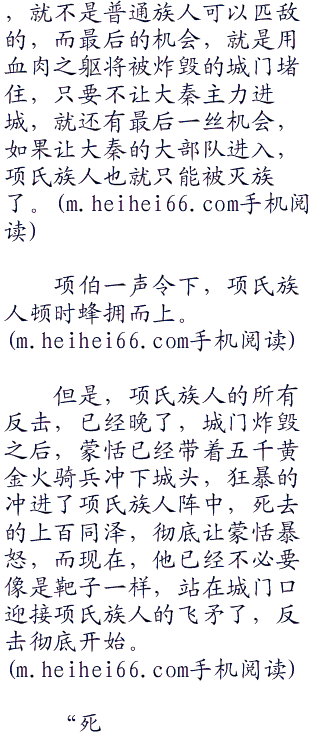 ，就不是普通族人可以匹敌
的，而最后的机会，就是用
血肉之躯将被炸毁的城门堵
住，只要不让大秦主力进
城，就还有最后一丝机会，
如果让大秦的大部队进入，
项氏族人也就只能被灭族
了。(m.heihei66.com手机阅
读)
项伯一声令下，项氏族
人顿时蜂拥而上。
(m.heihei66.com手机阅读)
但是，项氏族人的所有
反击，已经晚了，城门炸毁
之后，蒙恬已经带着五千黄
金火骑兵冲下城头，狂暴的
冲进了项氏族人阵中，死去
的上百同泽，彻底让蒙恬暴
怒，而现在，他已经不必要
像是靶子一样，站在城门口
迎接项氏族人的飞矛了，反
击彻底开始。
(m.heihei66.com手机阅读)
“死